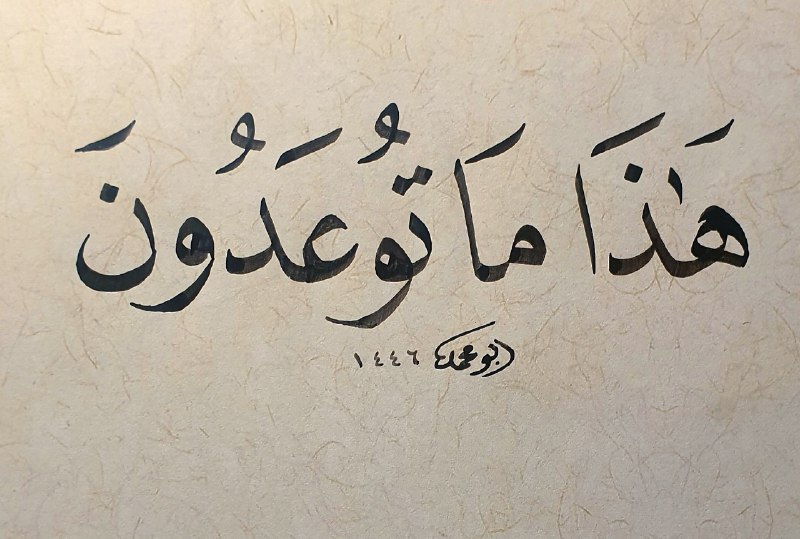 هَٰذَا مَا تُوعَدُونَ
ابو محمد ١٤٤٦